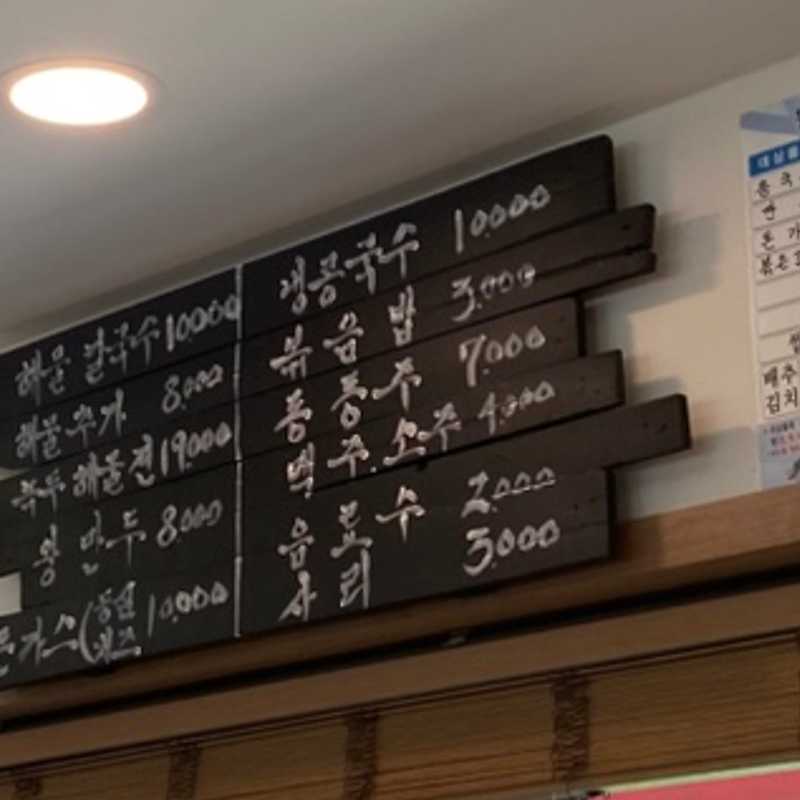 해물 칼국수 10,000
해물 추가 8,000
녹두 해물전 19,000
왕 만두 8,000
돈가스(등심 치즈 10,000
냉콩국수 10,000
볶음밥 3,000
동동주 7,000
맥주.소주 4,000
음료수 2,000
사리 3,000
배추
김치